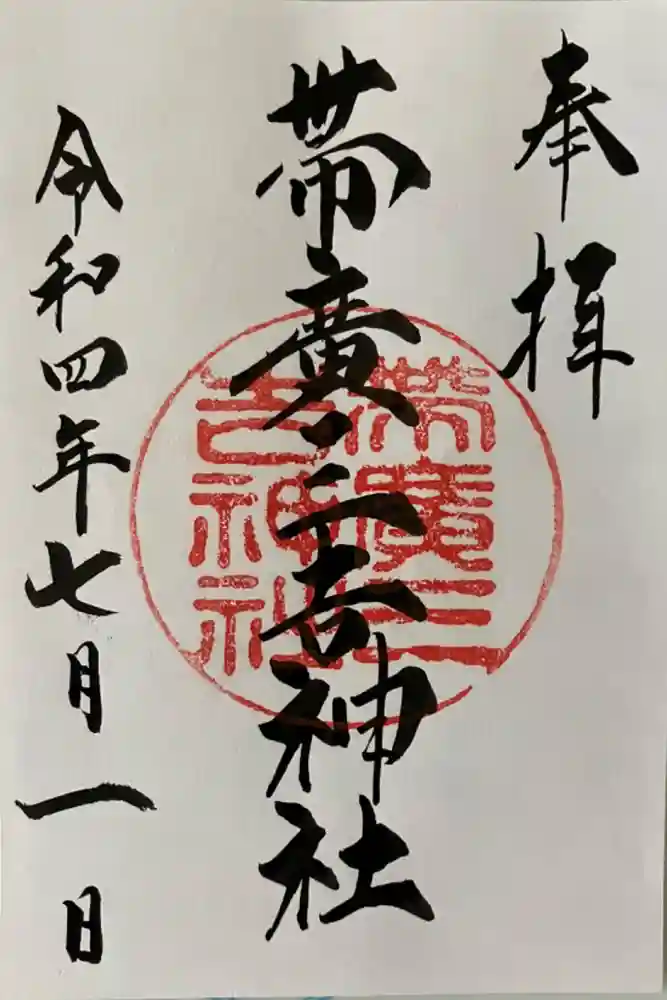 奉拝
帯廣三吉神社
令和四年七月一日
帯廣三
吉神社